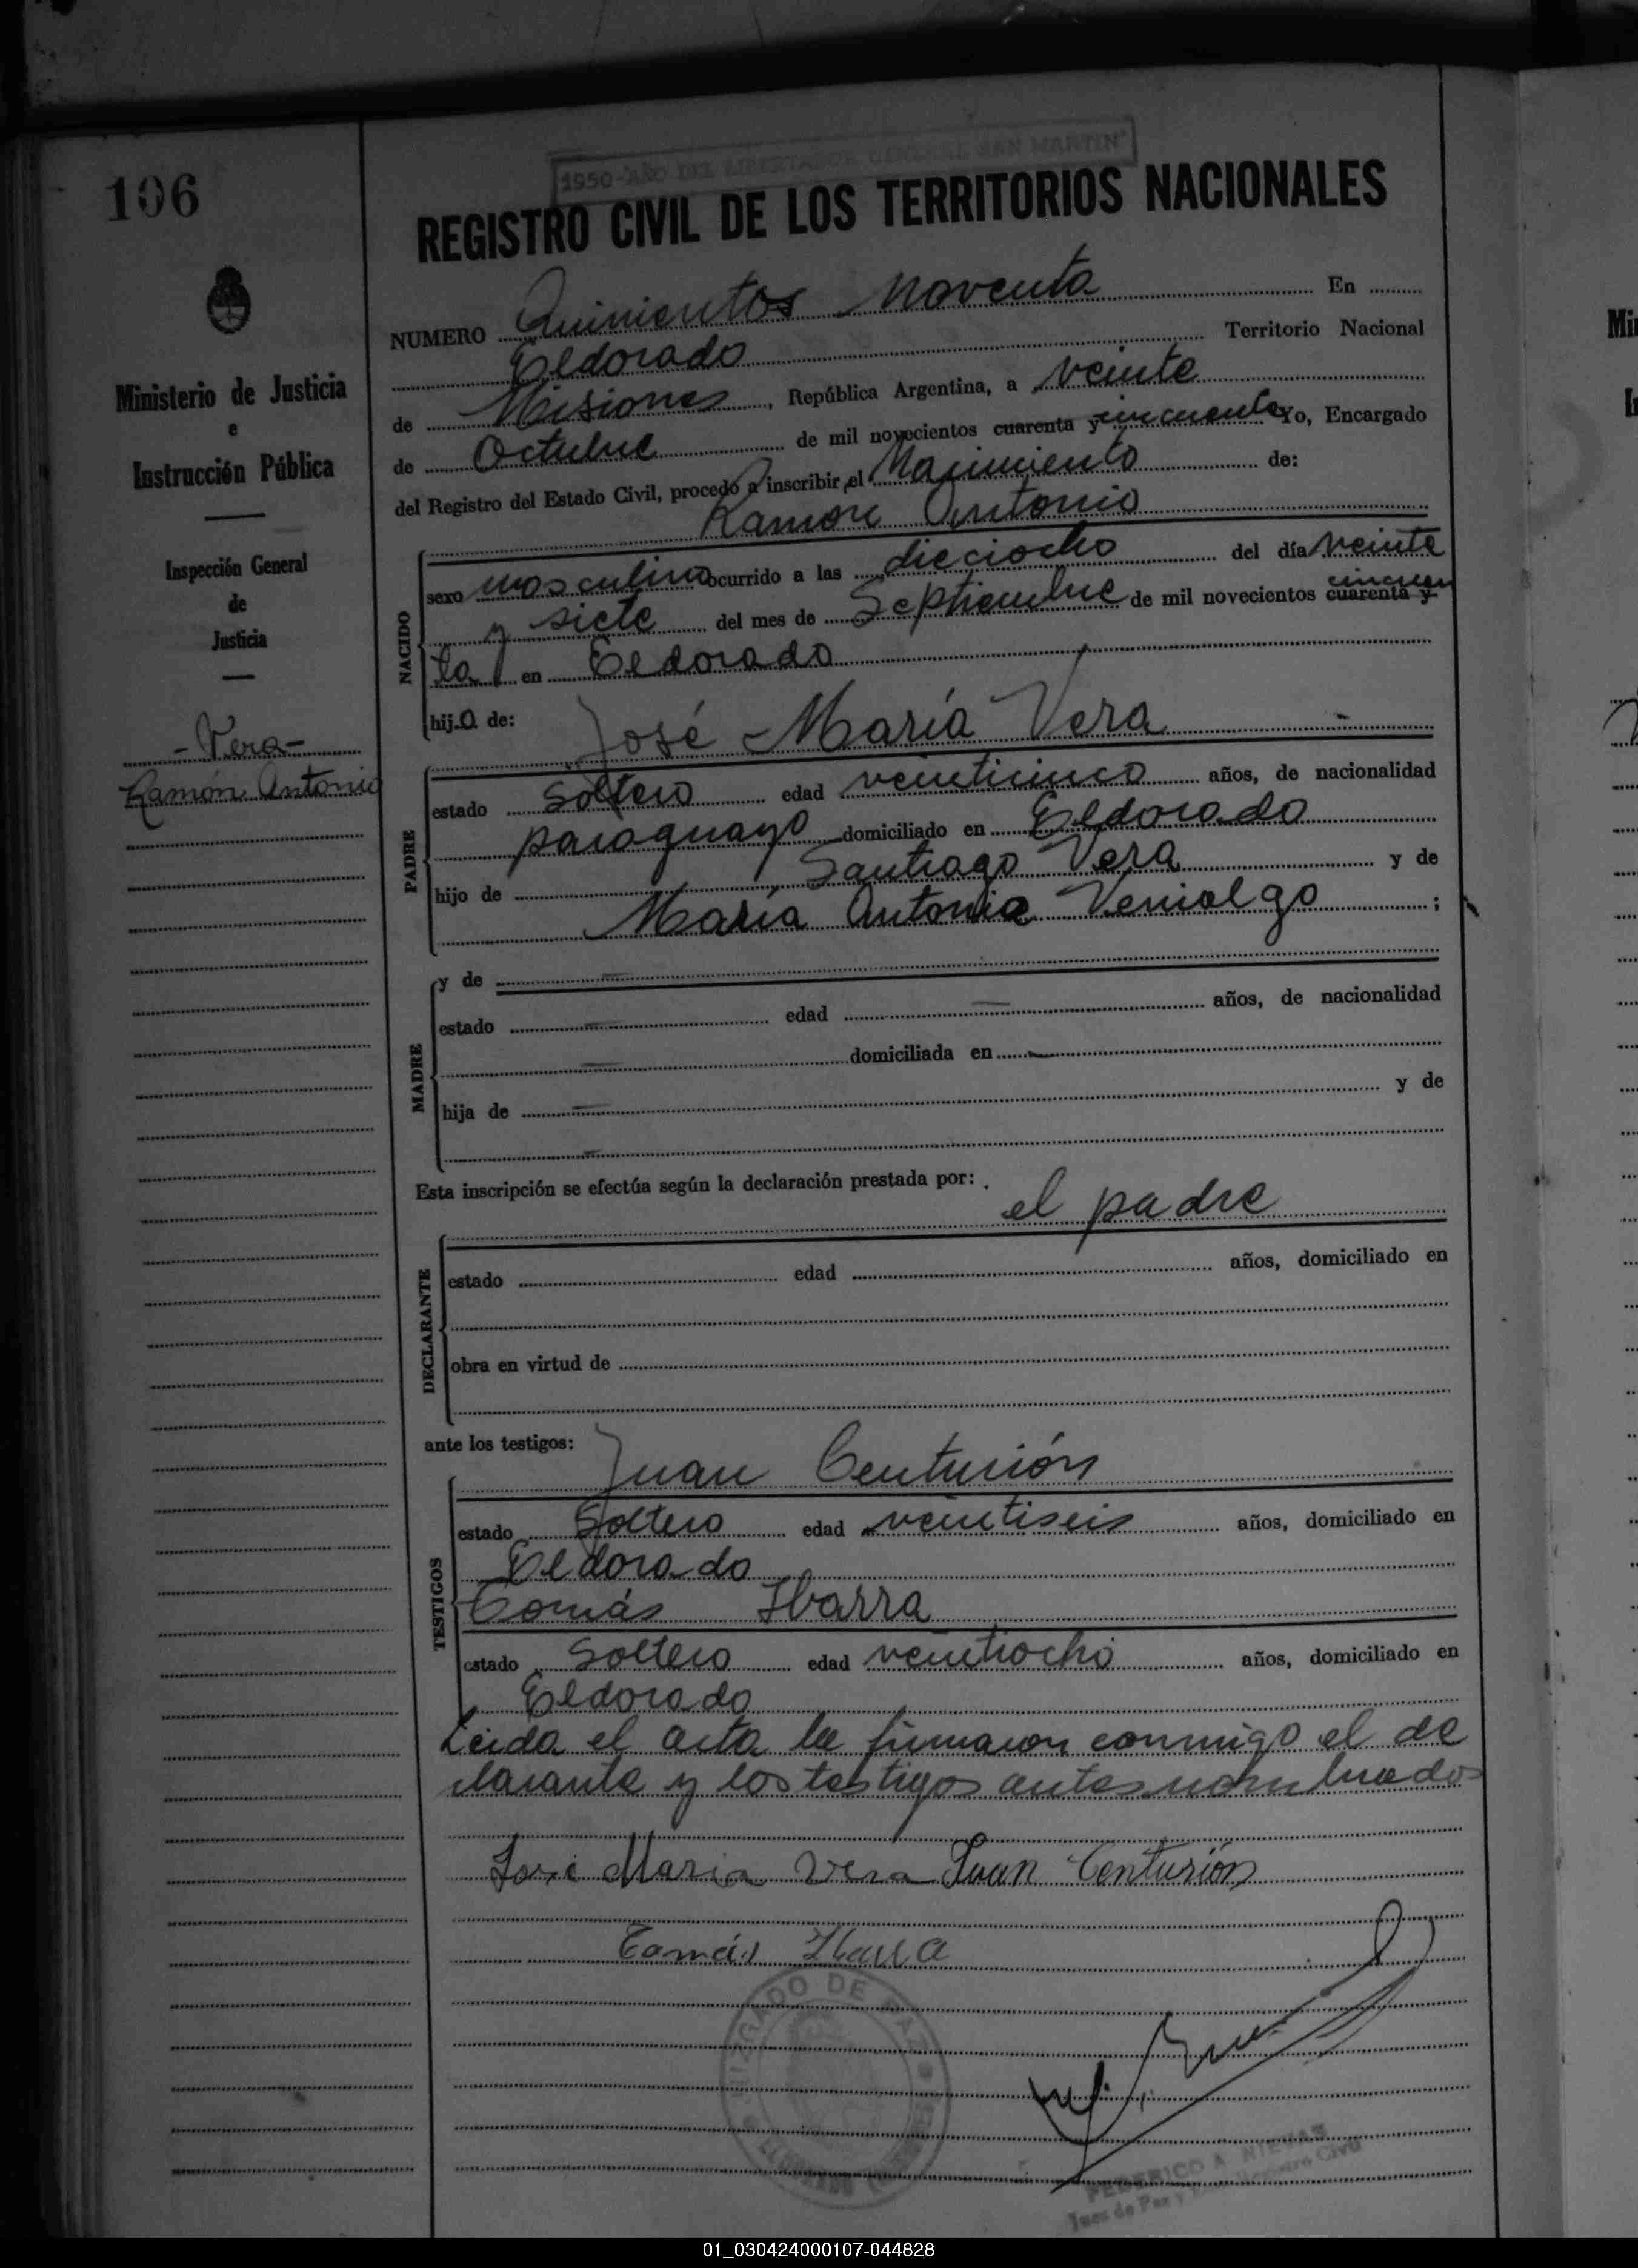 106
1950-AÑO DEL LIBERTADOR GENERAL SAN MARTIN
REGISTRO CIVIL DE LOS TERRITORIOS NACIONALES
Ministerio de Justicia
e
Instrucción Pública
Inspección General
de
Justicia
- Vera -
Ramón Antonio
NUMERO Quinientos Noventa En
Eldorado Territorio Nacional
de Misiones, República Argentina, a veinte
de Octubre de mil novecientos cuarenta y cincuenta Yo, Encargado
del Registro del Estado Civil, procedo a inscribir el Nacimiento de:
Ramon Antonio
NACIDO
sexo masculino ocurrido a las dieciocho del día veinte
y siete del mes de Septiembre de mil novecientos cuarenta y cincuen
ta en Eldorado
hijo de: José María Vera
PADRE
estado soltero edad veinticinco años, de nacionalidad
paraguayo domiciliado en Eldorado
hijo de Santiago Vera y de
María Antonia Venialgo ;
MADRE
y de —
estado — edad — años, de nacionalidad
— domiciliada en —
hija de — y de
—
Esta inscripción se efectúa según la declaración prestada por:
el padre
DECLARANTE
estado edad años, domiciliado en
obra en virtud de
ante los testigos: Juan Centurión
TESTIGOS
estado soltero edad veintiseis años, domiciliado en
Eldorado
Tomás Ibarra
estado soltero edad veintiocho años, domiciliado en
Eldorado
Leida el acta la firmaron conmigo el de
clarante y los testigos antes nombrados
José Maria Vera Juan Centurión
Tomás Ibarra
JUZGADO DE PAZ
FEDERICO A. NIEVAS
Juez de Paz y Registro Civil
01_030424000107-044828